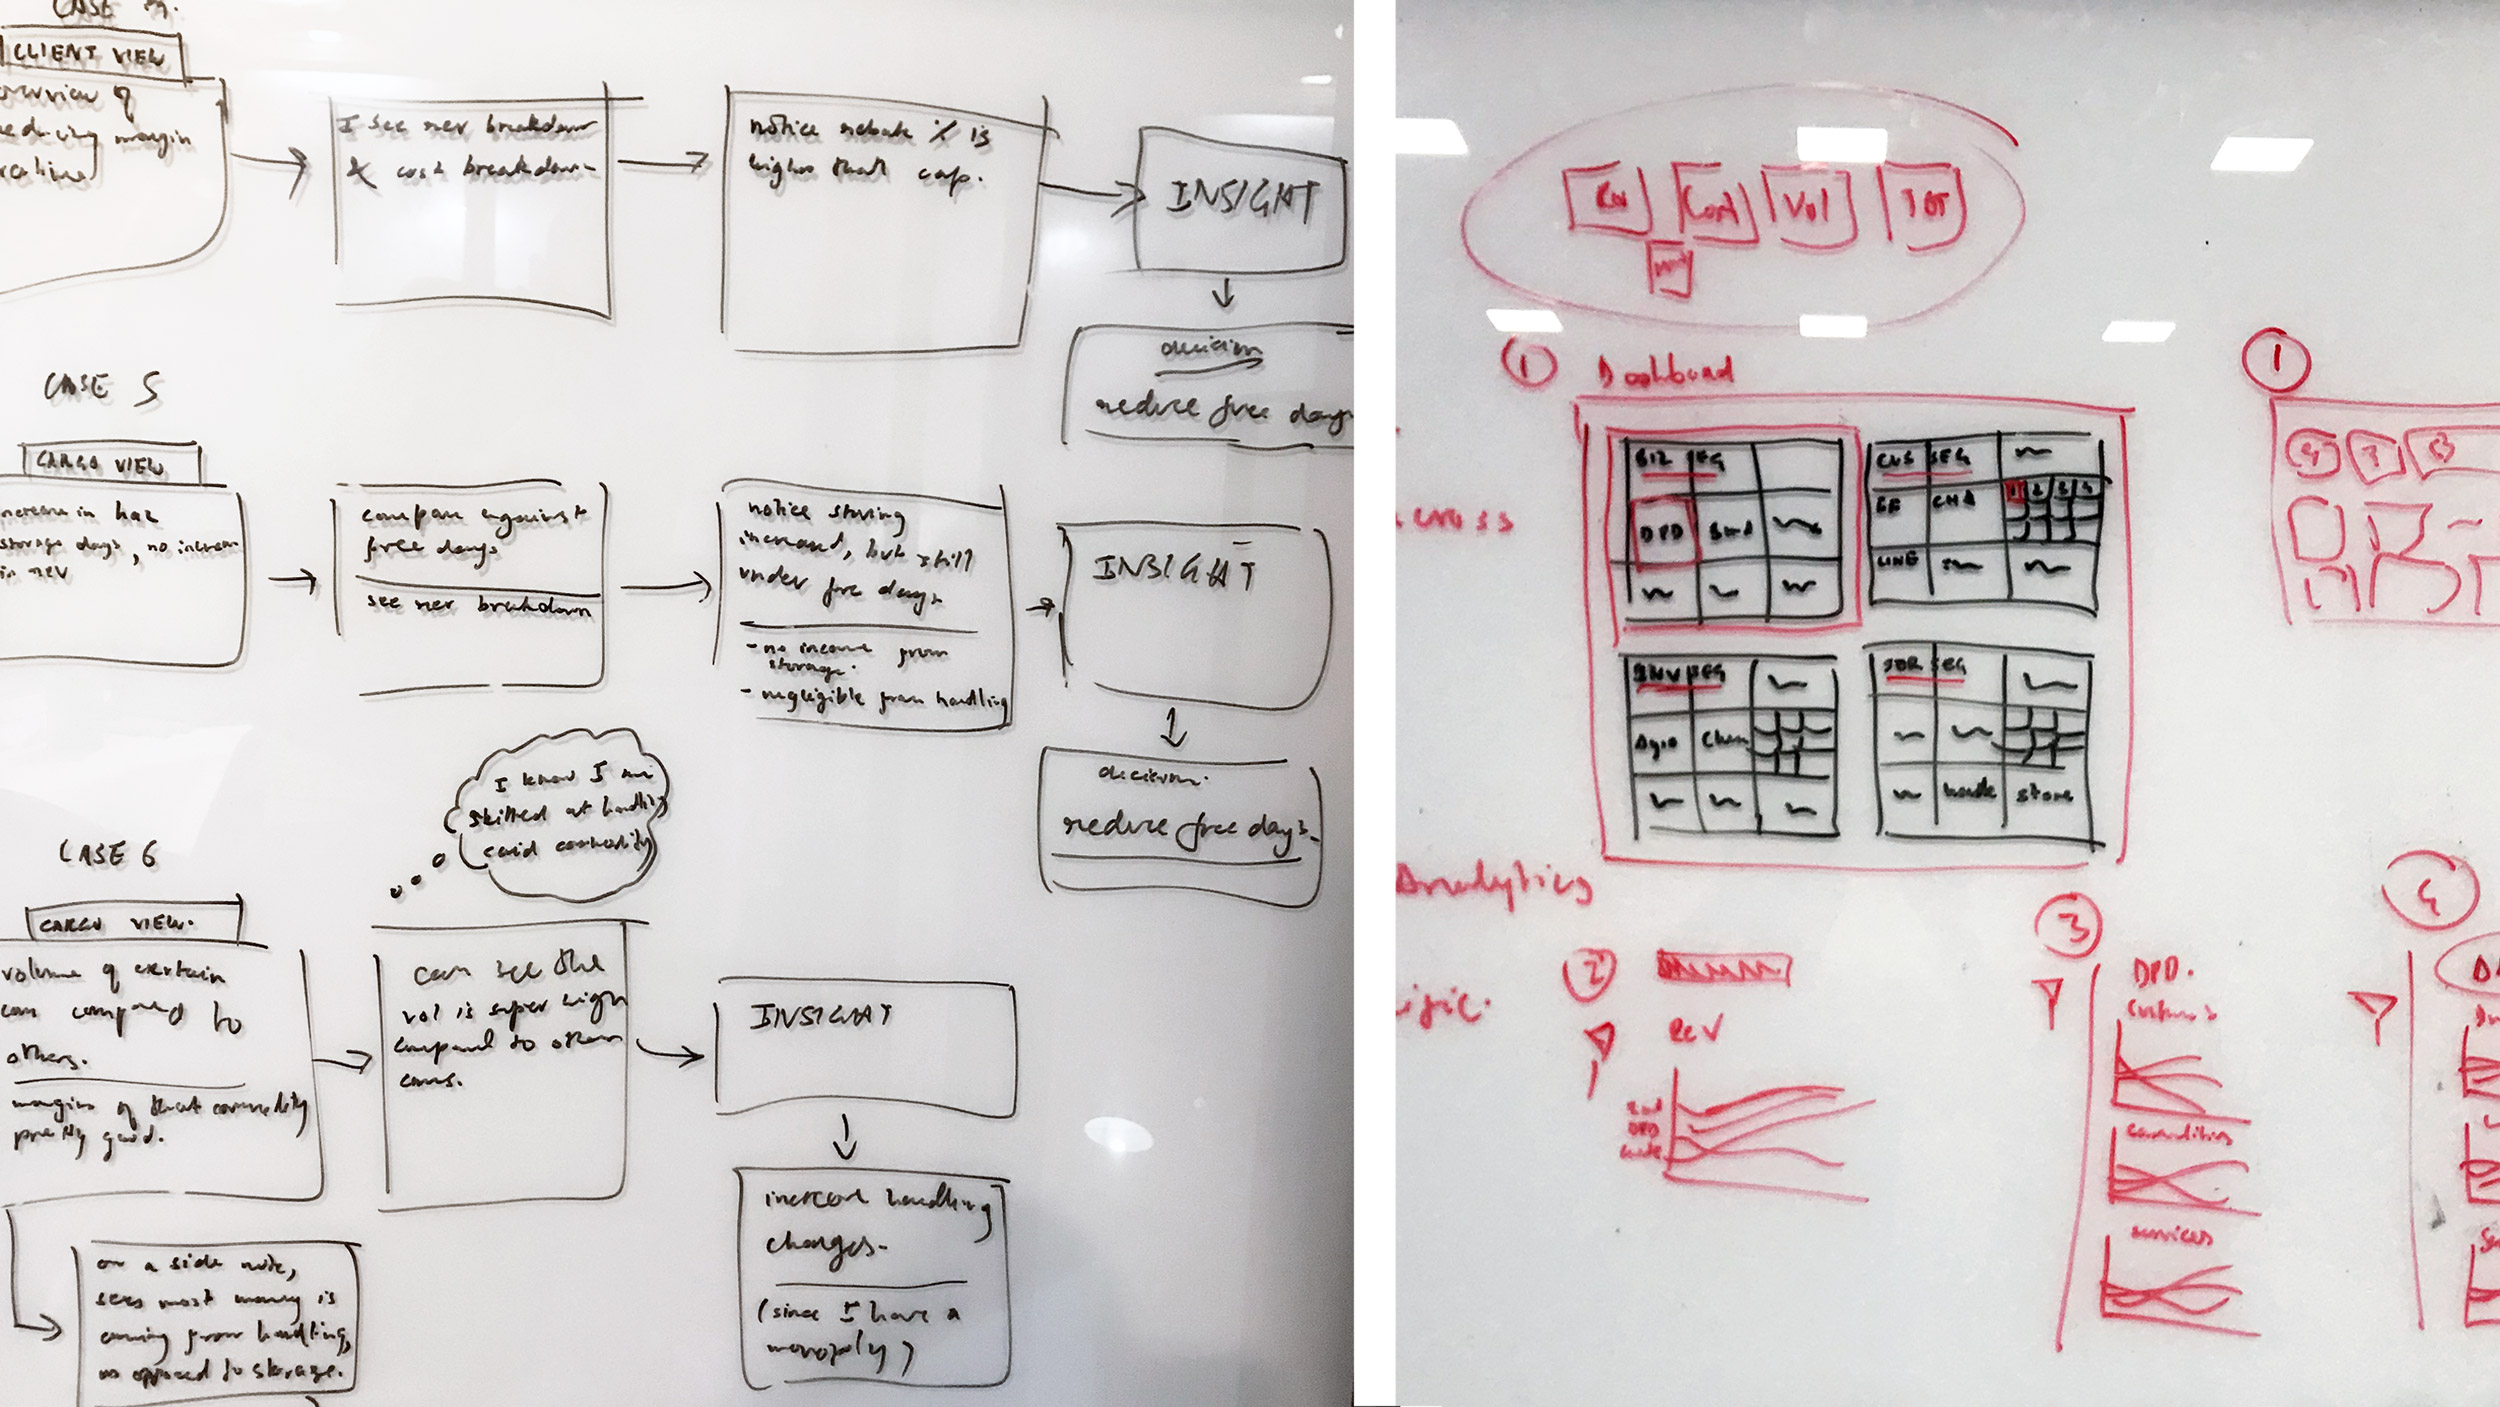 CASE
CLIENT VIEW
overview of
reducing margin
I see rev breakdown
& cost breakdown
notice rebate % is
higher that cap.
INSIGHT
decision
reduce free days
CASE 5
CARGO VIEW
increase in haz
storage days, no increase
in rev
compare against
free days
see rev breakdown
notice storing
increased, but still
under free days
- no income from
storage.
- negligible from handling
INSIGHT
decision.
reduce free days
I know I am
skilled at handling
said commodity
CASE 6
CARGO VIEW.
volume of certain
com compared to
others.
margins of that commodity
pretty good.
can see the
vol is super high
compared to other
coms.
INSIGHT
increase handling
charges.
(since I have a
monopoly)
on a side note,
sees most money is
coming from handling,
as opposed to storage.
Rev
Cont
Vol
TOT
1
Dashboard
BIZ SEG
DPD
Bond
CUS SEG
CHA
1 2 3 4
LINE
INV SEG
Agro
Chem
SER SEG
handle
store
cross
Analytics
1
2
REV
DPD
3
DPD.
Customers
commodities
services
4